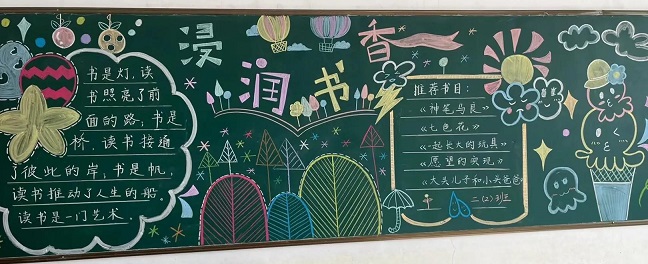 浸润书香
书是灯,读
书照亮了前
面的路;书是
桥,读书接通
了彼此的岸;书是帆,
读书推动了人生的船。
读书是一门艺术。
推荐书目:
《神笔马良》
《七色花》
《一起长大的玩具》
《愿望的实现》
《大头儿子和小头爸爸》
二(2)班